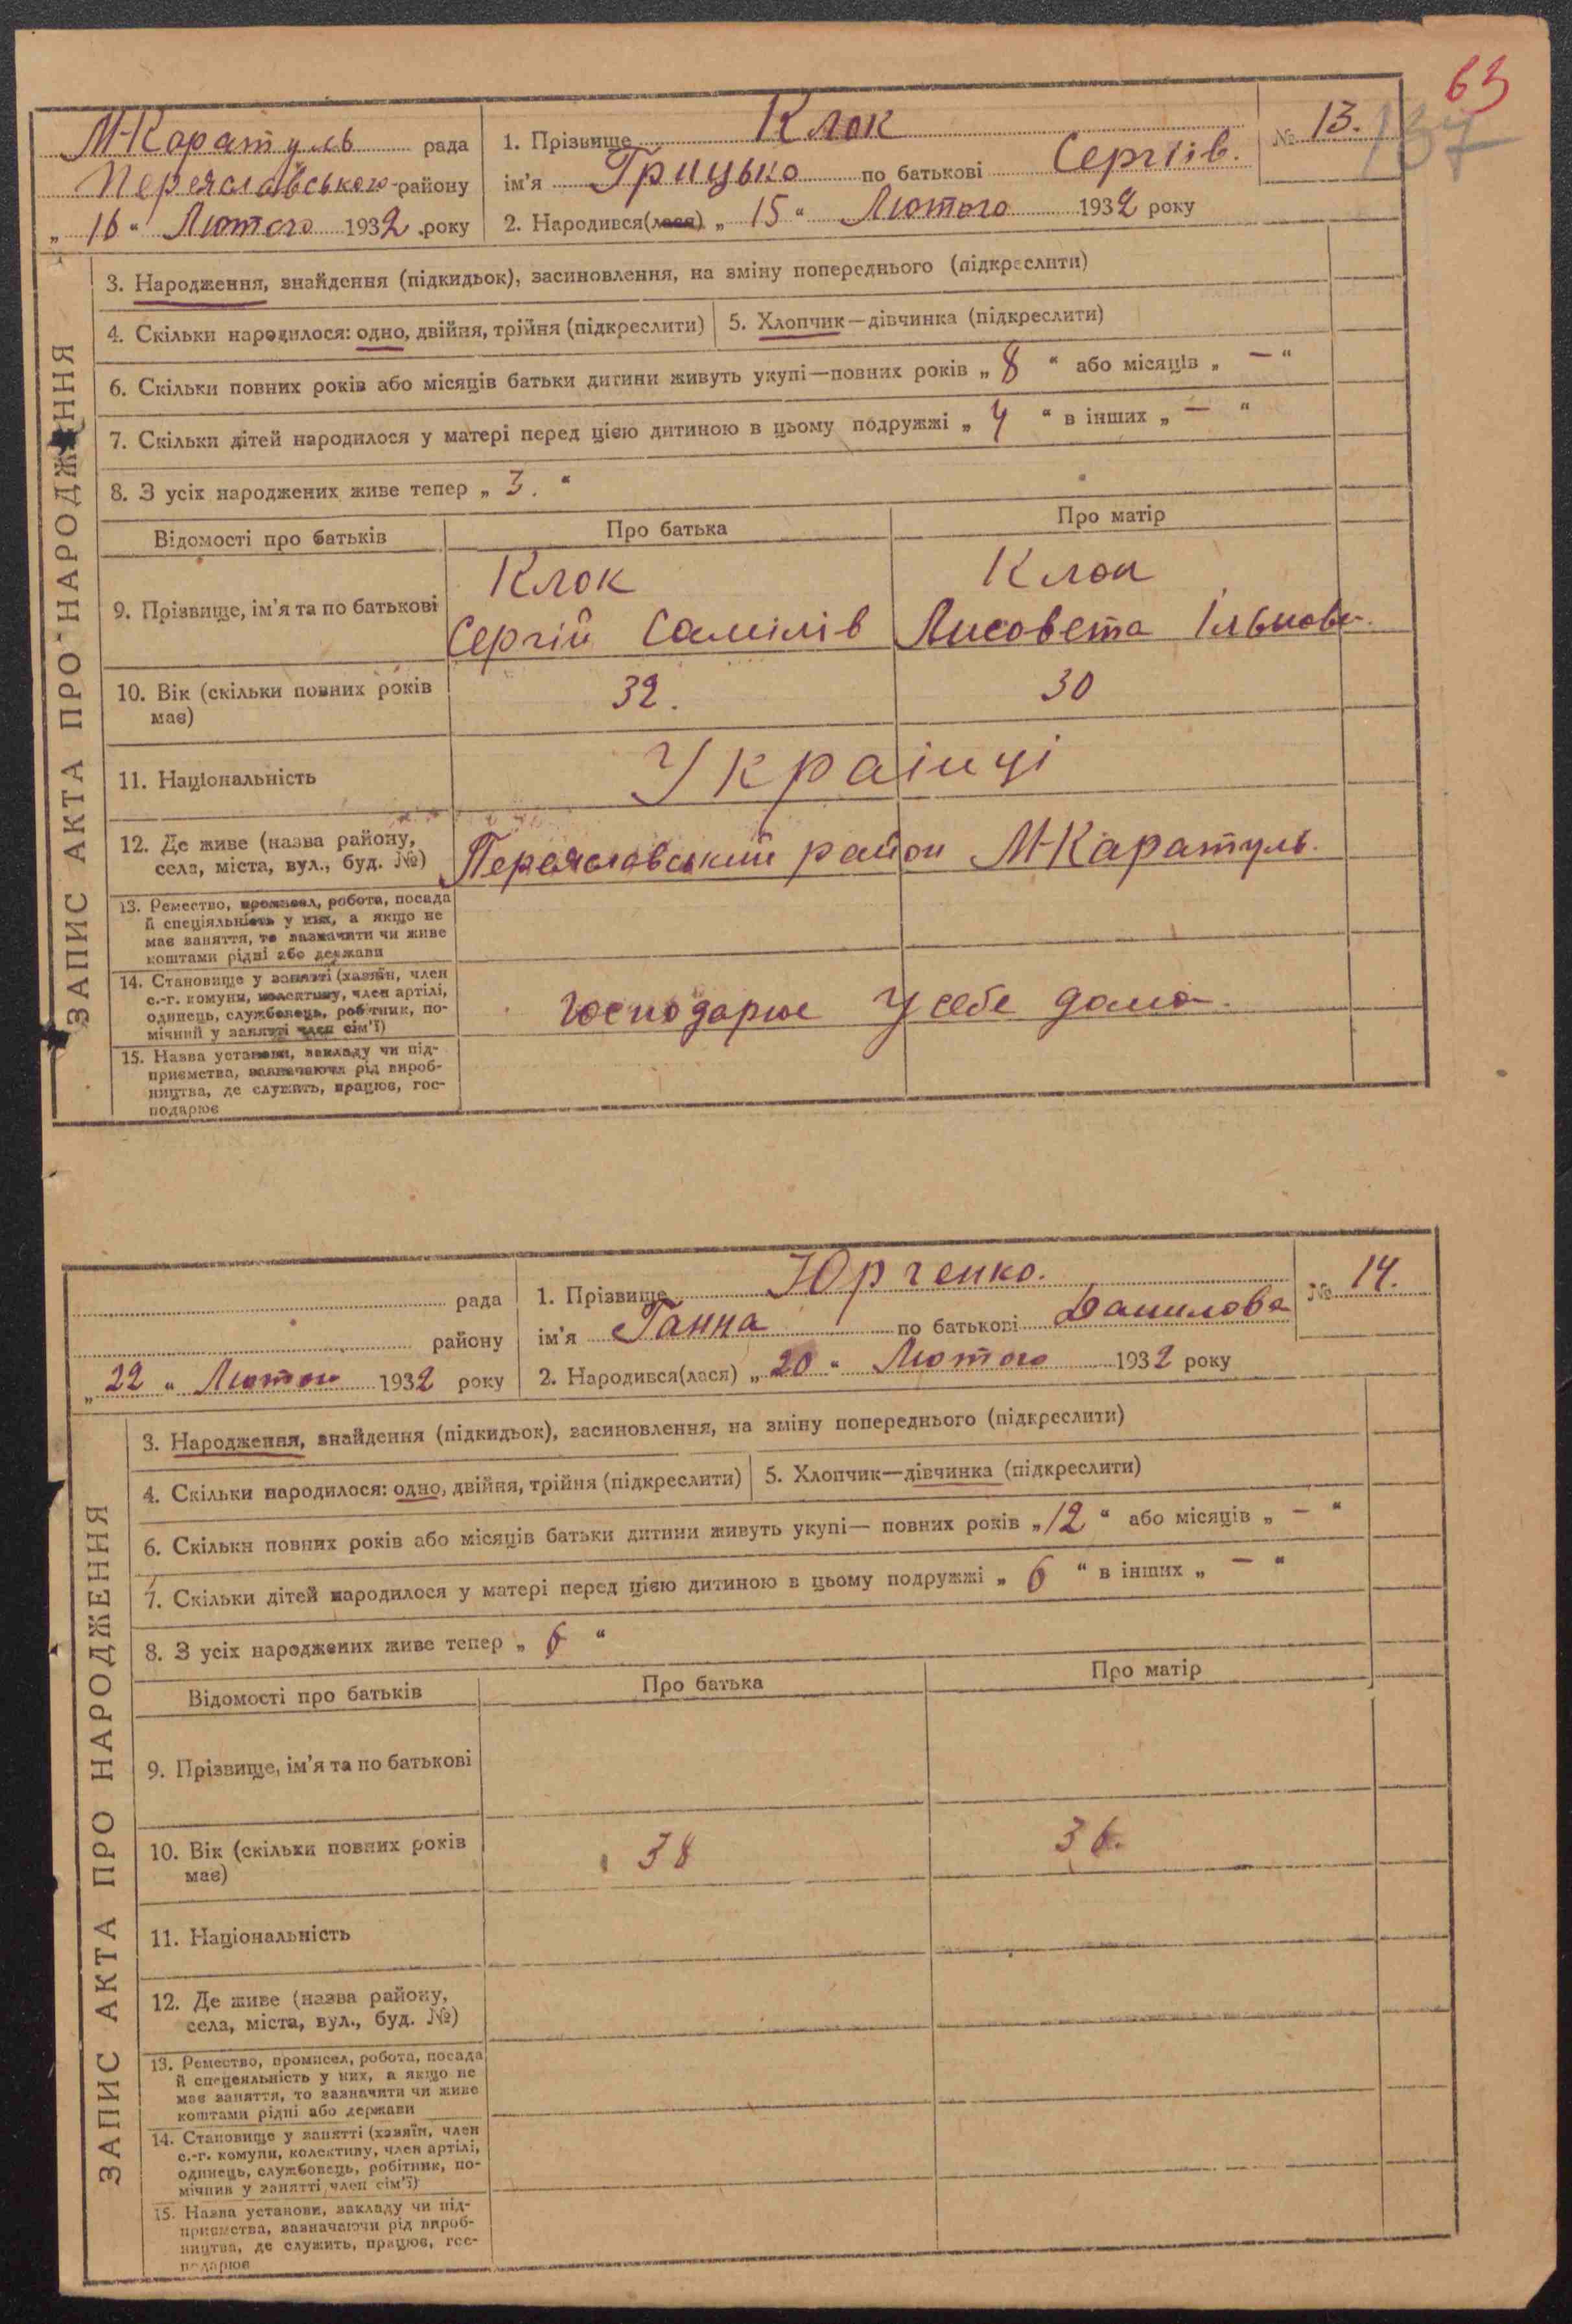 63
137
М-Каратуль рада
Переяславського району
„ 16 “ Лютого 1932 року
1. Прізвище Клок
ім’я Грицько по батькові Сергіїв.
2. Народився(лася) „ 15 “ Лютого 1932 року
№ 13.
ЗАПИС АКТА ПРО НАРОДЖЕННЯ
3. Народження, знайдення (підкидьок), засиновлення, на зміну попереднього (підкреслити)
4. Скільки народилося: одно, двійня, трійня (підкреслити)
5. Хлопчик—дівчинка (підкреслити)
6. Скільки повних років або місяців батьки дитини живуть укупі—повних років „ 8 “ або місяців „ — “
7. Скільки дітей народилося у матері перед цією дитиною в цьому подружжі „ 4 “ в інших „ — “
8. З усіх народжених живе тепер „ 3. “
Відомості про батьків
Про батька
Про матір
9. Прізвище, ім’я та по батькові
Клок
Сергій Самілів
Клок
Лисовета Ількова.
10. Вік (скільки повних років
має)
32.
30
11. Національність
Українці
12. Де живе (назва району,
села, міста, вул., буд. №)
Переяславський район М-Каратуль.
13. Ремество, промисел, робота, посада
й спеціяльність у них, а якщо не
має заняття, то зазначити чи живе
коштами рідні або держави
14. Становище у занятті (хазяїн, член
с.-г. комуни, колективу, член артілі,
одинець, службовець, робітник, по-
мічний у занятті член сім’ї)
господарює у себе дома.
15. Назва установи, закладу чи під-
приємства, зазначаючи рід вироб-
ництва, де служить, працює, гос-
подарює
рада
району
„ 22 “ Лютого 1932 року
1. Прізвище Юрченко.
ім’я Ганна по батькові Данилова
2. Народився(лася) „ 20 “ Лютого 1932 року
№ 14.
ЗАПИС АКТА ПРО НАРОДЖЕННЯ
3. Народження, знайдення (підкидьок), засиновлення, на зміну попереднього (підкреслити)
4. Скільки народилося: одно, двійня, трійня (підкреслити)
5. Хлопчик—дівчинка (підкреслити)
6. Скільки повних років або місяців батьки дитини живуть укупі— повних років „ 12 “ або місяців „ — “
7. Скільки дітей народилося у матері перед цією дитиною в цьому подружжі „ 6 “ в інших „ — “
8. З усіх народжених живе тепер „ 6 “
Відомості про батьків
Про батька
Про матір
9. Прізвище, ім’я та по батькові
10. Вік (скільки повних років
має)
38
36.
11. Національність
12. Де живе (назва району,
села, міста, вул., буд. №)
13. Ремество, промисел, робота, посада
й спецеяльність у них, а якщо не
має заняття, то зазначити чи живе
коштами рідні або держави
14. Становище у занятті (хазяїн, член
с.-г. комуни, колективу, член артілі,
одинець, службовець, робітник, по-
мічник у занятті член сім’ї)
15. Назва установи, закладу чи під-
приємства, зазначаючи рід вироб-
ництва, де служить, працює, гос-
подарює